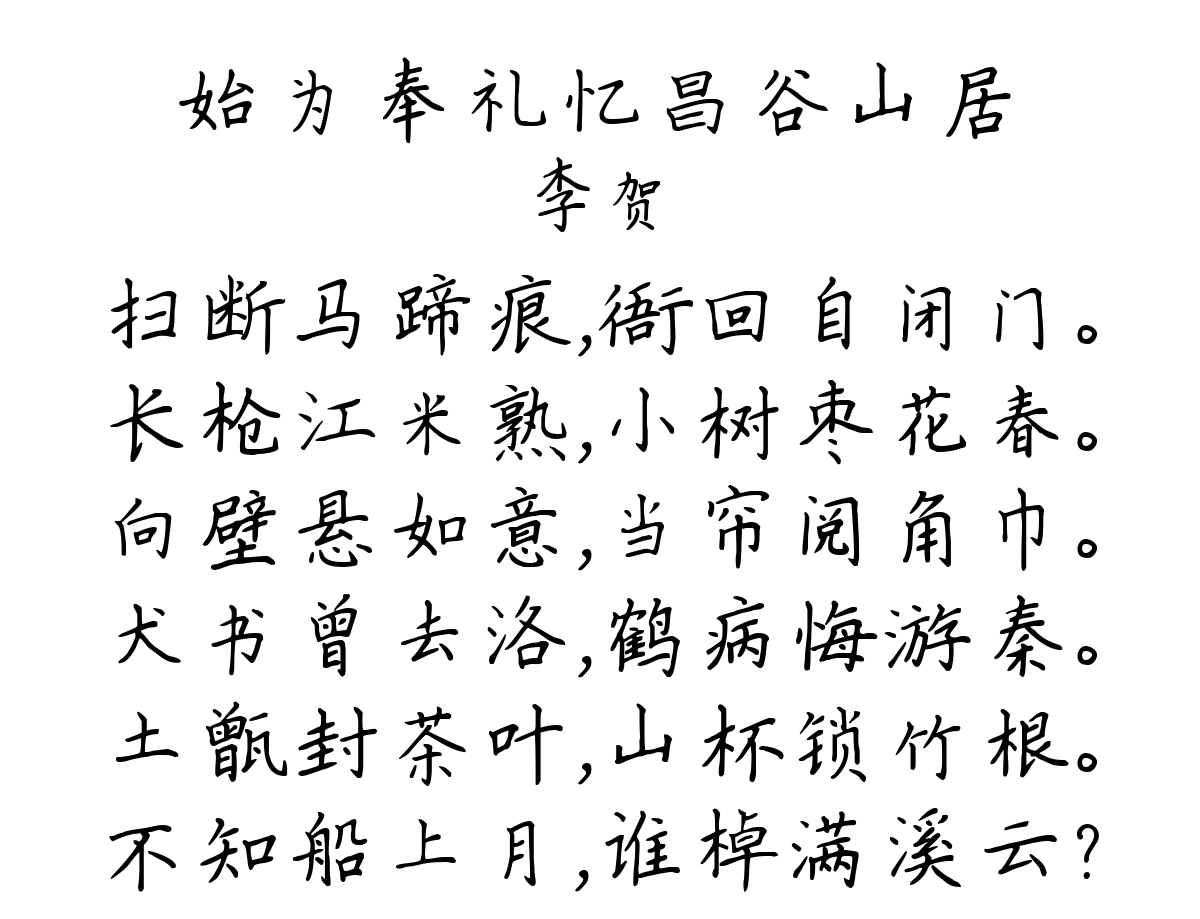 始为奉礼忆昌谷山居
李贺
扫断马蹄痕,衙回自闭门。
长枪江米熟,小树枣花春。
向壁悬如意,当帘阅角巾。
犬书曾去洛,鹤病悔游秦。
土甑封茶叶,山杯锁竹根。
不知船上月,谁棹满溪云?